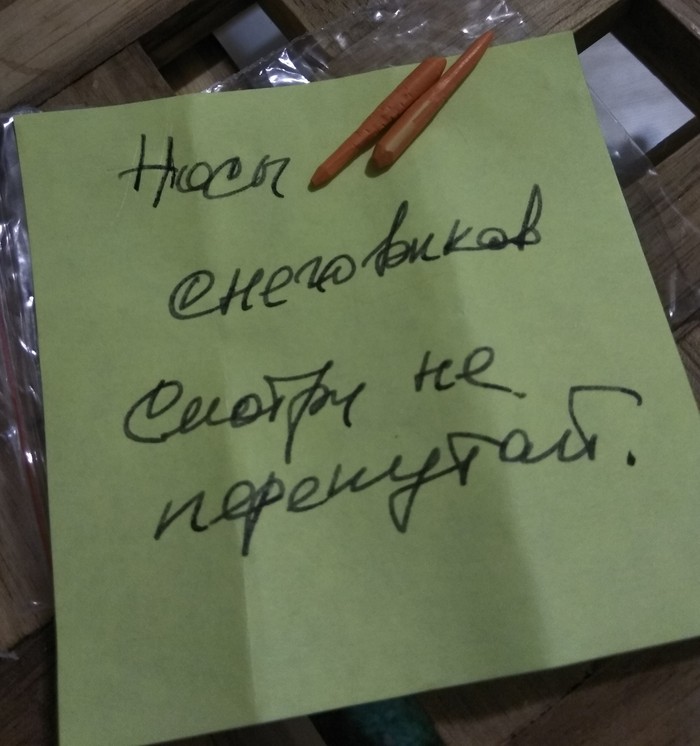 Носы
снеговиков
Смотри не
перепутай.